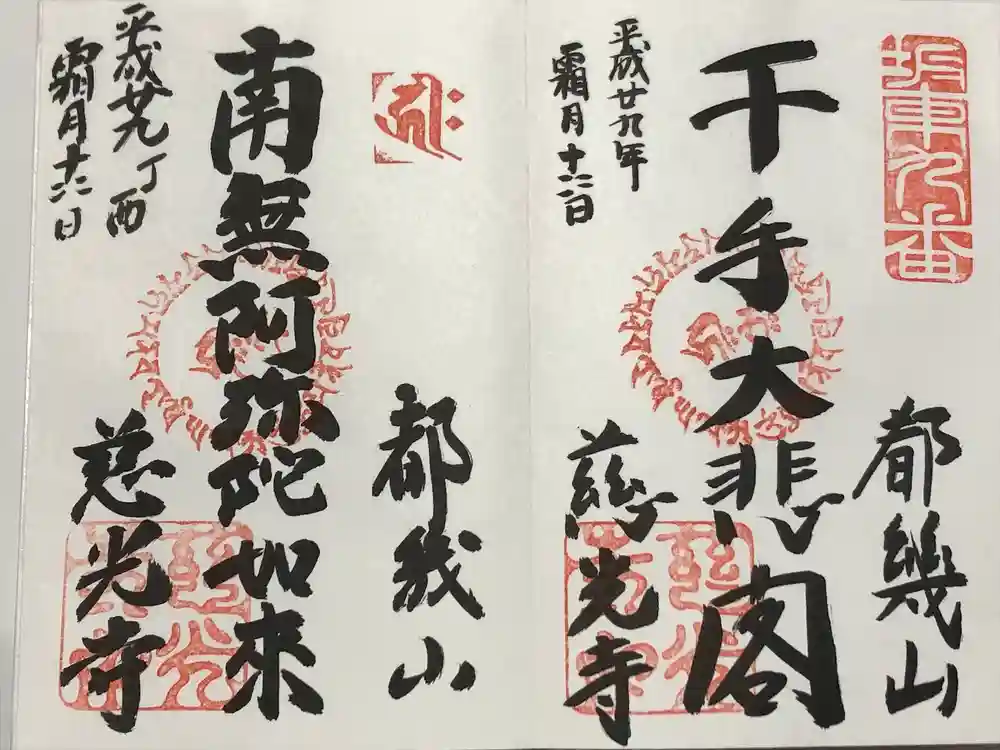 坂東九番
都幾山
千手大悲閣
平成廿九年
霜月十六日
慈光寺
都幾山
南無阿弥陀如來
平成廿九丁酉
霜月十六日
慈光寺